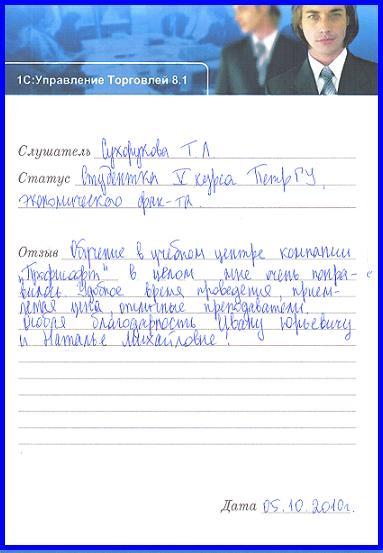 1С:Управление Торговлей 8.1
Слушатель Сухорукова Т.Л.
Статус Студентка V курса ПетрГУ,
экономического фак-та.
Отзыв Обучение в учебном центре компании
"Профисофт" в целом, мне очень понра-
вилось. Удобное время проведения, прием-
лемая цена, отличные преподаватели.
Особая благодарность Ивану Юрьевичу
и Наталье Михайловне!
Дата 05.10.2010г.